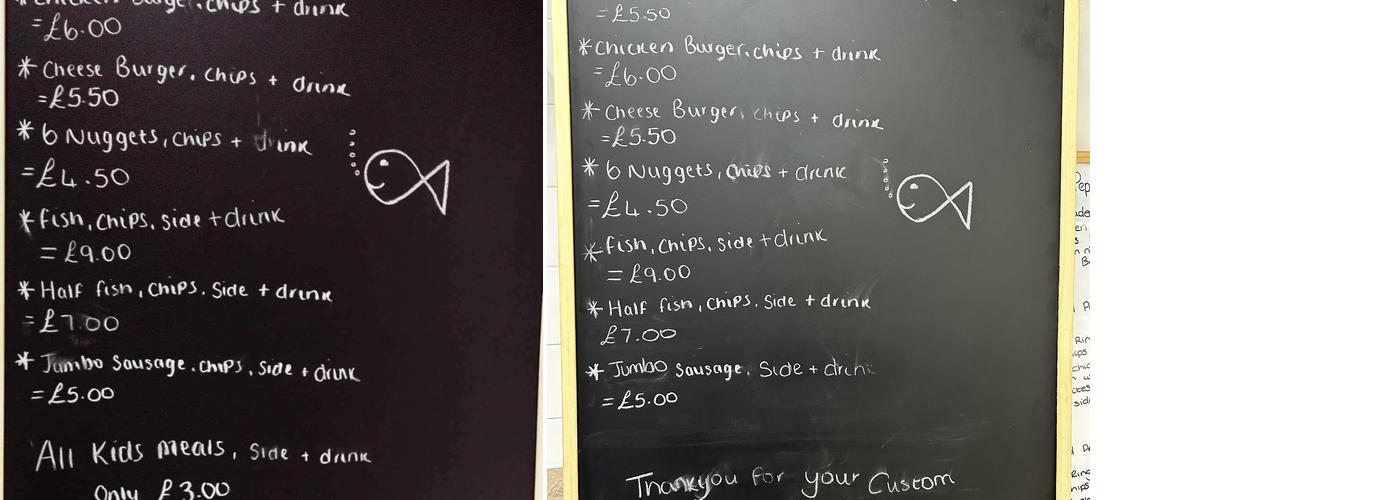 * Chicken Burger, chips + drink
=£6.00
* Cheese Burger, chips + drink
=£5.50
* 6 Nuggets, chips + drink
=£4.50
* fish, chips, side + drink
=£9.00
* Half fish, chips, Side + drink
=£7.00
* Jumbo Sausage, chips, Side + drink
=£5.00
All Kids meals, Side + drink
Only £3.00
=£5.50
* Chicken Burger, chips + drink
=£6.00
* Cheese Burger, chips + drink
=£5.50
* 6 Nuggets, chips + drink
=£4.50
* fish, chips, side + drink
=£9.00
* Half fish, chips, Side + drink
£7.00
* Jumbo Sausage, Side + drink
=£5.00
Thankyou for your Custom